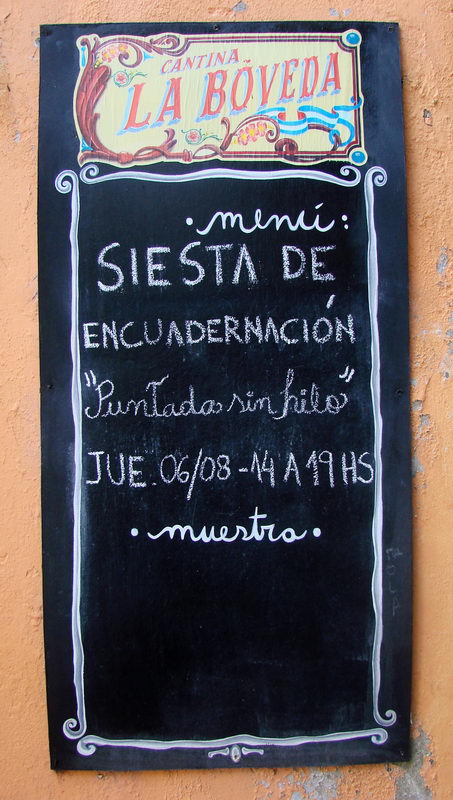 CANTINA
LA BÓVEDA
•menú:
SIESTA DE
ENCUADERNACIÓN
"Puntada sin hilo"
JUE. 06/08 - 14 A 19 HS
• muestra •